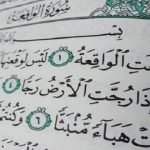 سُورَةُ الْوَاقِعَةِ
بِسْمِ
تِ الْوَاقِعَةُ ١ لَيْسَ لِوَقْعَتِهَا
ذَا رُجَّتِ الْأَرْضُ رَجًّا ٤
تْ هَبَاءً مُنْبَثًّا ٦ وَكُنتُمْ